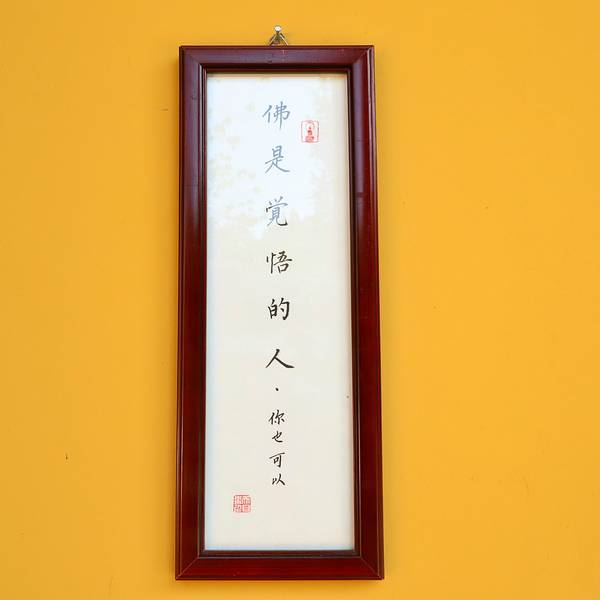 佛是覚悟的人、你也可以